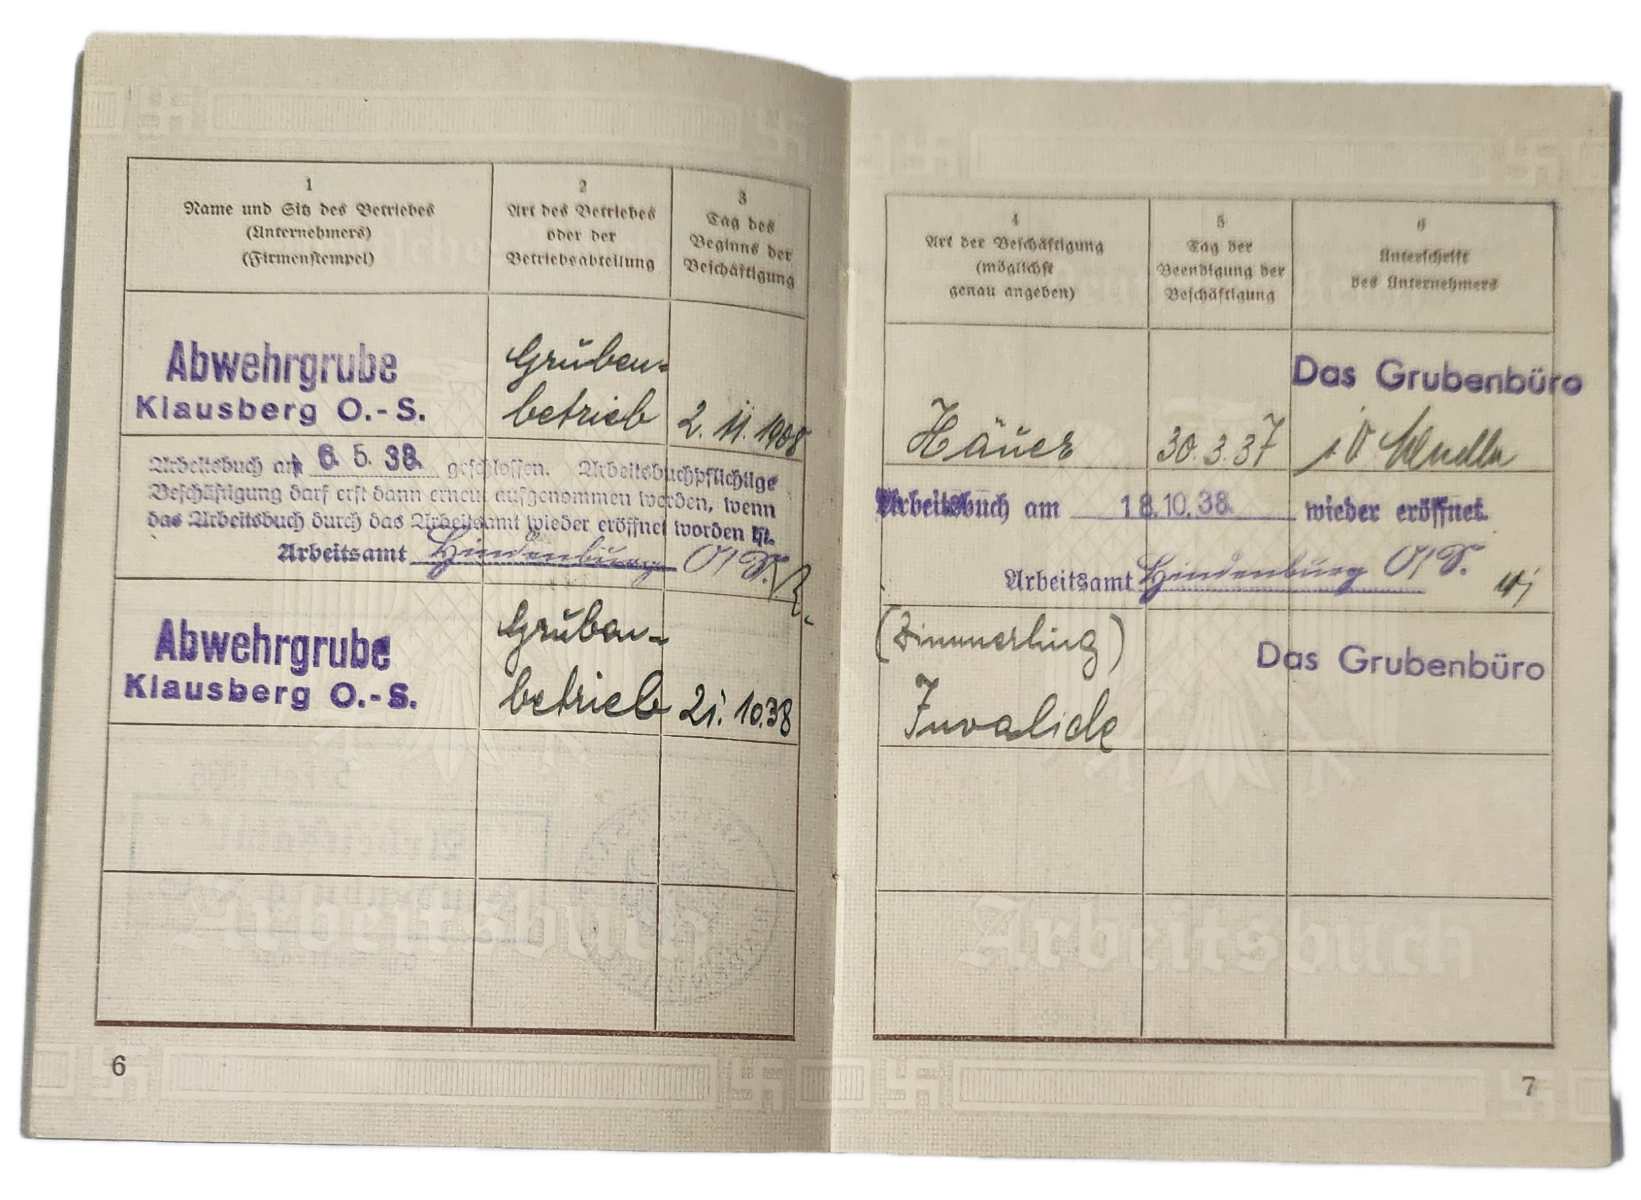 1
Name und Sitz des Betriebes
(Unternehmers)
(Firmenstempel)
2
Art des Betriebes
oder der
Betriebsabteilung
3
Tag des
Beginns der
Beschäftigung
Abwehrgrube
Klausberg O.-S.
Gruben-
betrieb
2. 11. 1908
Arbeitsbuch am 6. 5. 38. geschlossen. Arbeitsbuchpflichtige
Beschäftigung darf erst dann erneut aufgenommen werden, wenn
das Arbeitsbuch durch das Arbeitsamt wieder eröffnet worden ist.
Arbeitsamt Hindenburg O/S.
Abwehrgrube
Klausberg O.-S.
Gruben-
betrieb
21. 10. 38
Arbeitsbuch
6
4
Art der Beschäftigung
(möglichst
genau angeben)
5
Tag der
Beendigung der
Beschäftigung
6
Unterschrift
des Unternehmers
Häuer
30. 3. 37
Das Grubenbüro
Arbeitsbuch am 18. 10. 38. wieder eröffnet.
Arbeitsamt Hindenburg O/S.
(Zimmerling)
Invalide
Das Grubenbüro
Arbeitsbuch
7